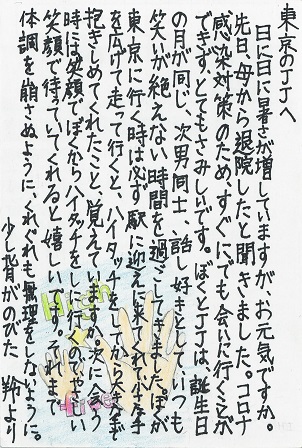 東京のJJへ
日に日に暑さが増していますが、お元気ですか。
先日、母から退院したと聞きました。コロナ
感染対策のため、すぐにでも会いに行くことが
できず、とてもさみしいです。ぼくとJJは、誕生日
の月が同じ、次男同士、話し好きとして、いつも
笑いが絶えない時間を過ごしてきましたね。ぼくが
東京に行く時は必ず駅に迎えに来てくれ、小さな手
を広げて走って行くと、ハイタッチをしてから大きな手で
抱きしめてくれたこと、覚えていますか。次に会う
時には笑顔でぼくからハイタッチをしに行くのでやさしい
笑顔で待っていてくれると嬉しいです。それまで
体調を崩さぬように、くれぐれも無理をしないように。
少し背がのびた 翔より
High
Three